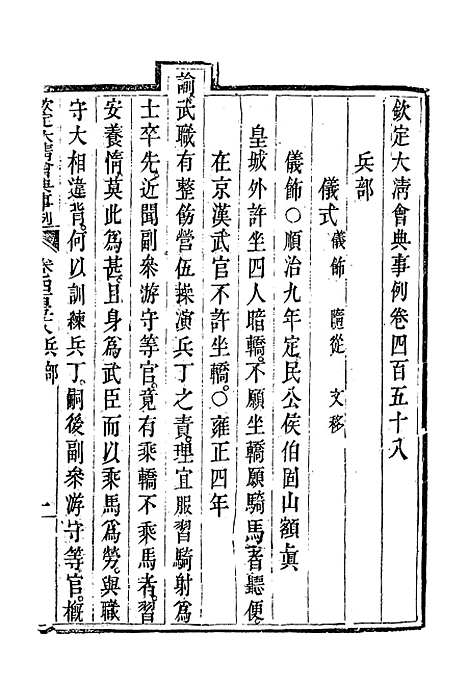 欽定大清會典事例卷四百五十八
兵部
儀式 儀飾 隨從 文移
儀飾○順治九年定民公侯伯固山額眞
皇城外許坐四人暗轎不願坐轎願騎馬者聽便
在京漢武官不許坐轎○雍正四年
諭武職有整飭營伍操演兵丁之責理宜服習騎射爲
士卒先近聞副參游守等官竟有乘轎不乘馬者習
安養惰莫此爲甚且身爲武臣而以乘馬爲勞與職
守大相違背何以訓練兵丁嗣後副參游守等官槪
欽定大清會典事例 卷四百五十八 兵部 一